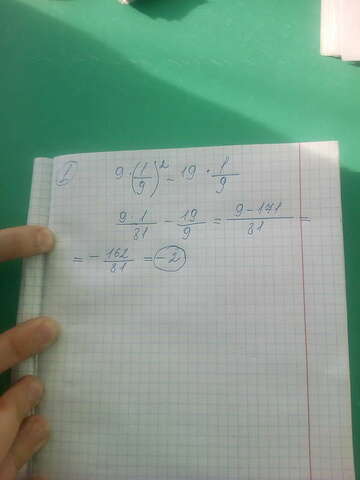 1
9 · (1/9)² = 19 · 1/9
9 · 1/81 - 19/9 = 9 - 171/81 =
= - 162/81 = - 2